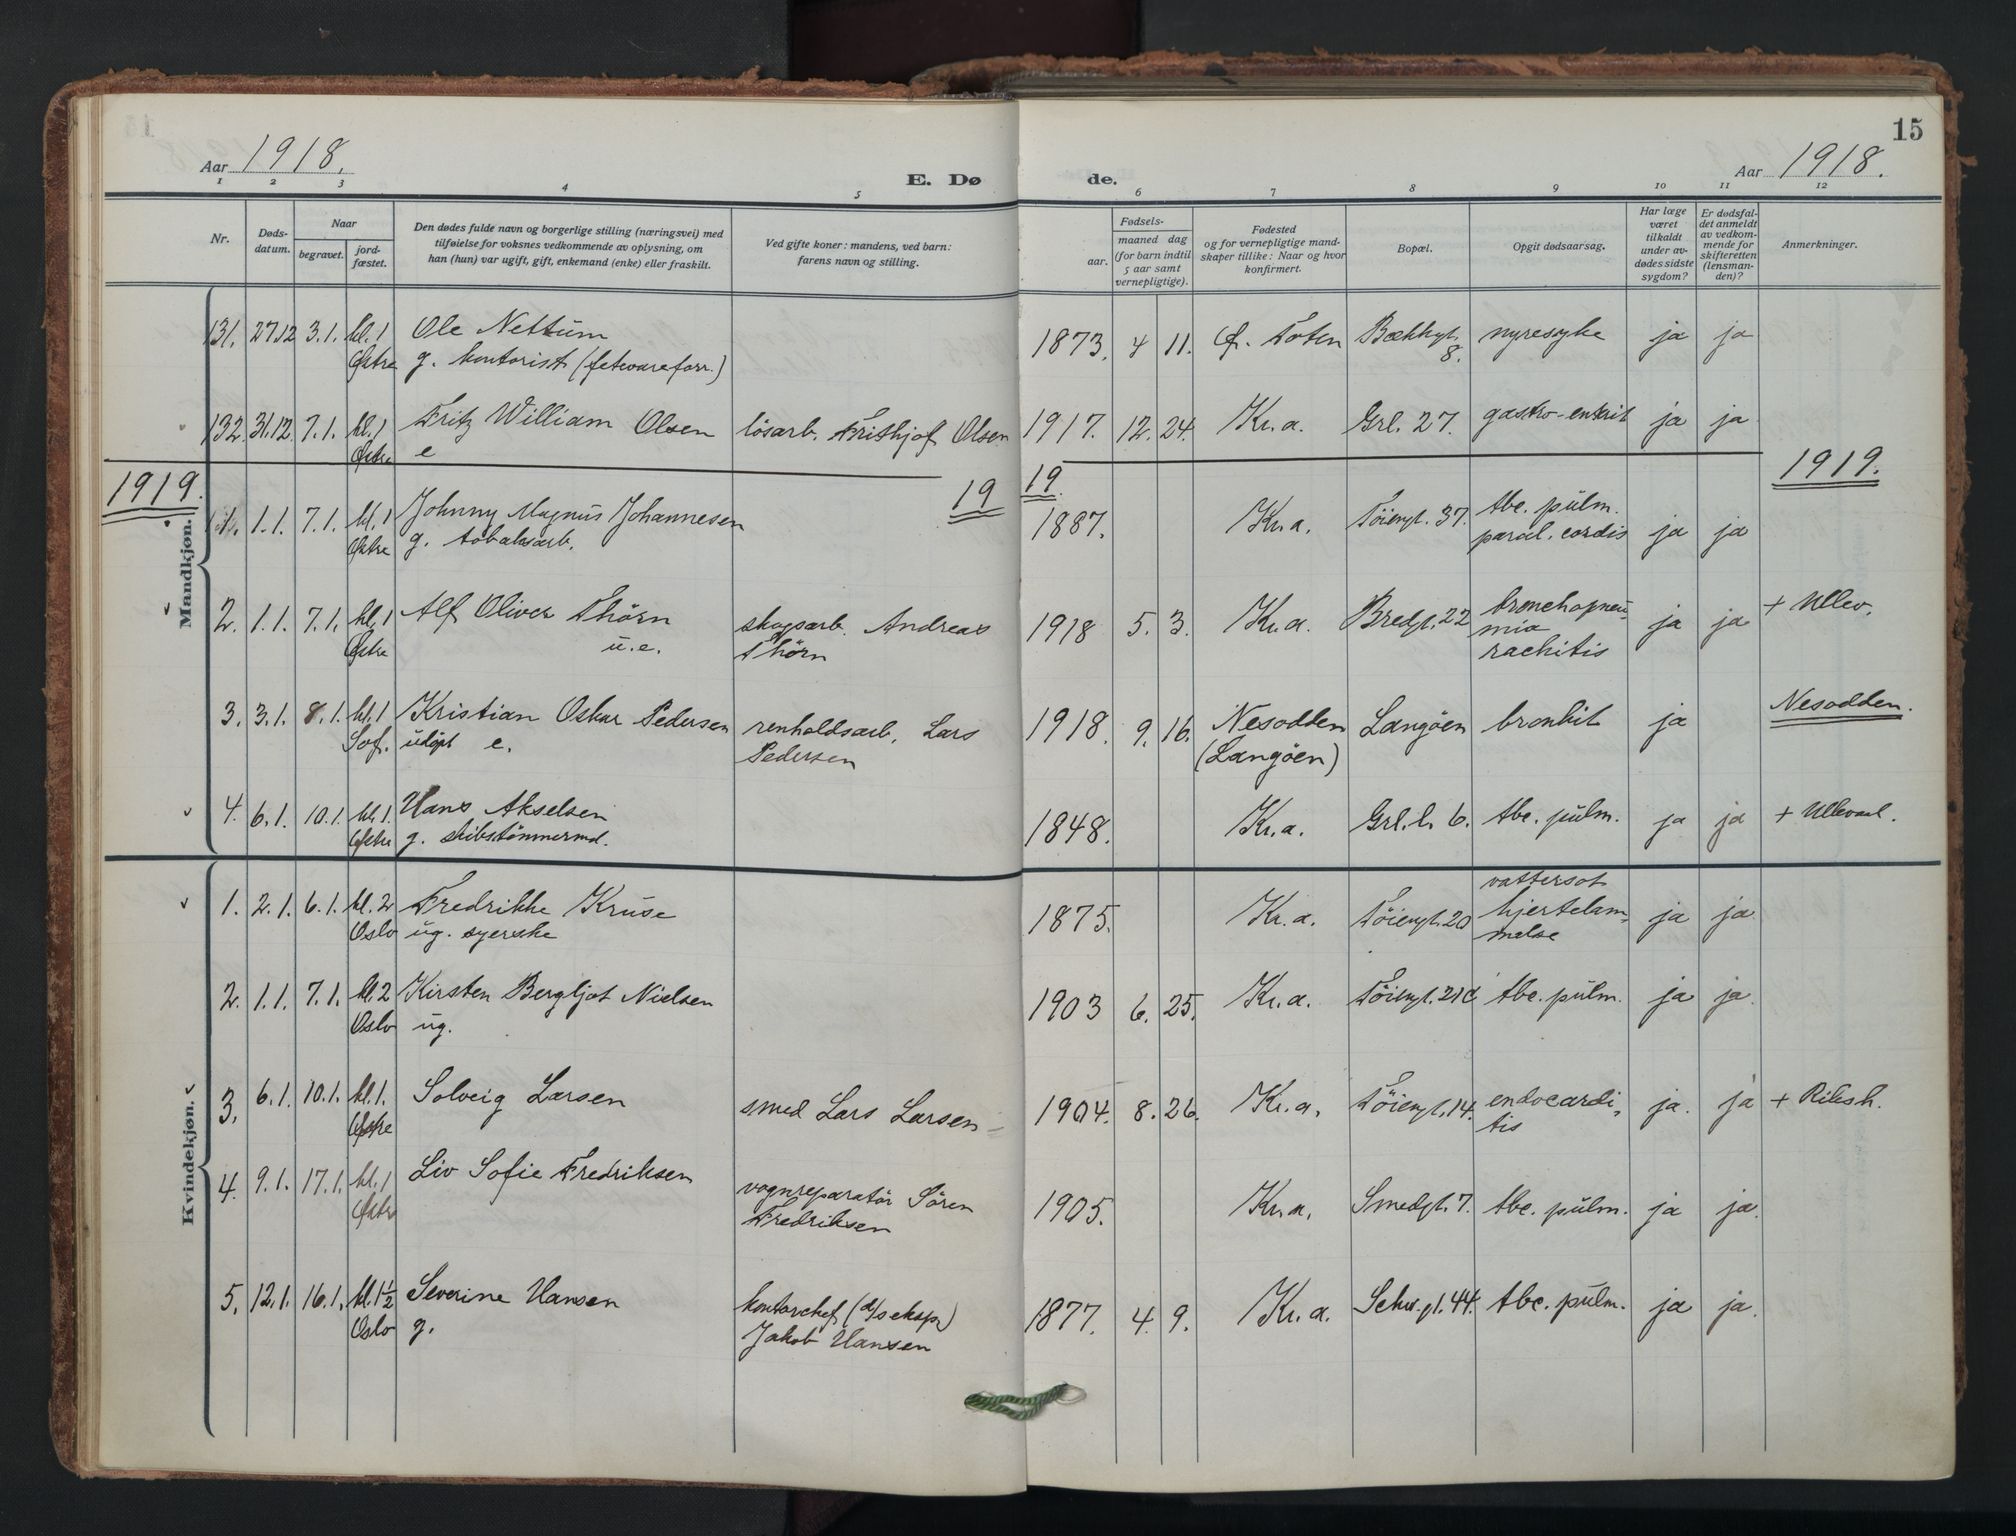 15
Aar 1918.
E. Dø de.
Aar 1918.
1 2 3 4 5 6 7 8 9 10 11 12
Nr.
Døds-
datum.
Naar
begravet.
jord-
fæstet.
Den dødes fulde navn og borgerlige stilling (næringsvei) med
tilføielse for voksnes vedkommende av oplysning, om
han (hun) var ugift, gift, enkemand (enke) eller fraskilt.
Ved gifte koner: mandens, ved barn:
farens navn og stilling.
Fødsels-
aar.
maaned dag
(for barn indtil
5 aar samt
vernepligtige).
Fødested
og for vernepligtige mand-
skaper tillike: Naar og hvor
konfirmert.
Bopæl.
Opgit dødsaarsag.
Har læge
været
tilkaldt
under av-
dødes sidste
sygdom?
Er dødsfal-
det anmeldt
av vedkom-
mende for
skifteretten
(lensman-
den)?
Anmerkninger.
131. 27.12 3.1. kl. 1 Ole Nettum 1873. 4 11. Ø. Toten Bækkgt. nyresyke ja ja
Østre g. kontorist (fetevareforr.) 8.
132. 31.12. 7.1. kl. 1 Fritz William Olsen løsarb. Frithjof Olsen 1917. 12. 24. Kr.a. Grl. 27. gastro-enterit ja ja
Østre e
1919. 19 19. 1919.
Mandkjøn.
1. 1.1. 7.1. kl. 1 Johnny Magnus Johannesen 1887. Kr.a. Töiengt. 37. tbc. pulm. ja ja
Østre g. tobaksarb. paral. cordis
2. 1.1. 7.1. kl. 1 Alf Oliver Thörn skogsarb. Andreas 1918 5. 3. Kr.a. Bredgt. 22 bronchopneu- ja ja + Ullev.
Østre u.e. Thörn mia
rachitis
3. 3.1. 8.1. kl. 1 Kristian Oskar Pedersen renholdsarb. Lars 1918. 9. 16. Nesodden Langöen bronkit ja Nesodden.
Sof. udöpt e. Pedersen (Langöen)
4. 6.1. 10.1. kl. 1. Hans Akselsen 1848. Kr.a. Grl.l. 6. tbc. pulm. ja ja + Ullevaal.
Østre g. skibstömmermd.
Kvindekjøn.
1. 2.1. 6.1. kl. 2 Fredrikke Kruse 1875. Kr.a. Töiengt. 20 vattersot ja ja.
Oslo ug. syerske hjertelam-
melse
2. 1.1. 7.1. kl. 2 Kirsten Bergljot Nielsen 1903 6. 25. Kr.a. Töiengt. 21c tbc. pulm. ja ja.
Oslo ug.
3. 6.1. 10.1. kl. 1. Solveig Larsen smed Lars Larsen 1904. 8. 26. Kr.a. Töiengt. 14. endocardi- ja. ja + Riksh.
Østre tis
4. 9.1. 17.1. kl. 1 Liv Sofie Fredriksen vognreparatör Sören 1905. Kr.a. Smedgt. 7. tbc. pulm. ja ja.
Østre Fredriksen
5. 12.1. 16.1. kl. 1½ Severine Hansen kontorchef (d/s eksp.) 1877. 4. 9. Kr.a. Schw.gt. 44. tbc. pulm. ja ja.
Oslo g. Jakob Hansen